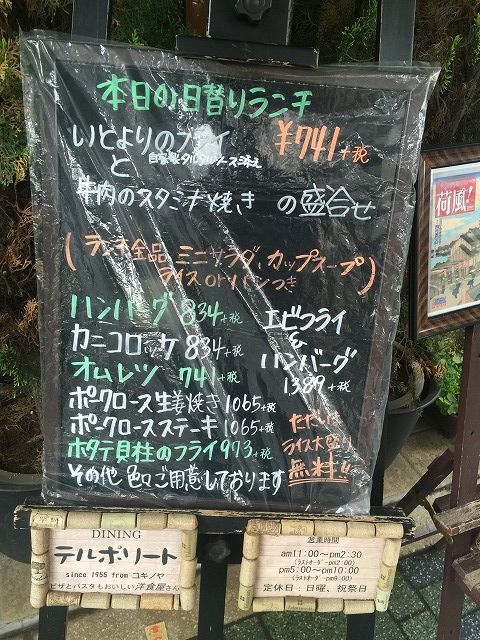 本日の日替りランチ
いとよりのフライ ¥741+税
自家製タルタルソース添え
と
牛肉のスタミナ焼き の盛合せ
(ランチ全品 ミニサラダ、カップスープ
ライス or パンつき)
ハンバーグ 834+税
カニコロッケ 834+税
オムレツ 741+税
ポークロース生姜焼き 1065+税
ポークロースステーキ 1065+税
ホタテ貝柱のフライ 973+税
その他 色々ご用意しております
エビフライ
&
ハンバーグ
1389+税
ただいま
ライス大盛り
無料!!
荷風!
DINING
テルボリート
since 1955 from コキノヤ
ピザとパスタもおいしい洋食屋さん
営業時間
am11:00～pm2:30
(ラストオーダーpm2:00)
pm5:00～pm10:00
(ラストオーダーpm9:00)
定休日:日曜、祝祭日